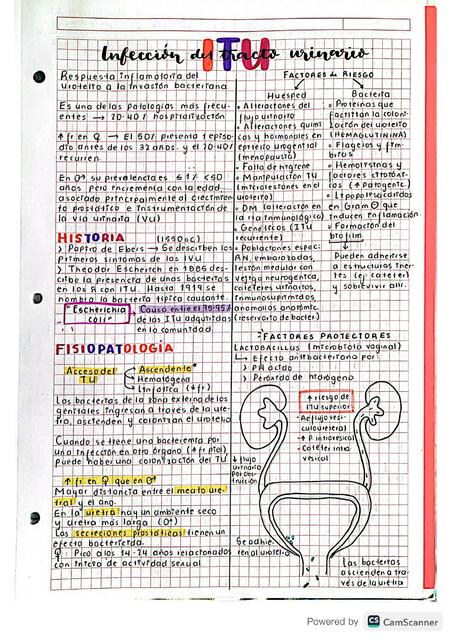 ITU
Infección del tracto urinario
Respuesta inflamatoria del
urotelio a la invasión bacteriana
Es una de las patologías más frecu-
entes → 20-40% hospitalización
↑ fr en ♀ → El 50% presenta 1 episo-
dio antes de los 32 años y el 20-40%
recurren.
En ♂ su prevalencia es ≤ 1% < 50
años pero incrementa con la edad,
asociado principalmente al crecimien-
to prostático e instrumentación de
la vía urinaria (VU)
HISTORIA (1550 aC)
> Papiro de Ebers → Se describen los
primeros síntomas de las IVU
> Theodor Escherich en 1885 des-
cribe la presencia de unas bacterias
en los R con ITU. Hasta 1919 se
nombra la bacteria típica causante.
"Escherichia
coli"
Causa entre el 75-95%
de las ITU adquiridas
en la comunidad
FISIOPATOLOGÍA
Acceso del
TU
Ascendente*
Hematógena
Linfática (↓fr)
Las bacterias de la zona externa de los
genitales ingresan a través de la ure-
tra, ascienden y colonizan el urotelio
Cuando se tiene una bacteremia por
una infección en otro órgano (↑fr piel)
puede haber una colonización del TU
↑ fr en ♀ que en ♂
Mayor distancia entre el meato ure-
tral y el ano.
En la uretra hay un ambiente seco
y uretra más larga (♂)
Las secreciones prostáticas tienen un
efecto bactericida.
♀: Pico a los 14-24 años relacionados
con inicio de actividad sexual
FACTORES de RIESGO
Huésped
• Alteraciones del
flujo urinario
• Alteraciones quími
cas y hormonales en
epitelio urogenital
(menopausia)
• Falta de higiene
• Manipulación TU
(microlesiones en el
urotelio)
• DM (alteración en
la vía inmunológica)
• Genéticos (ITU
recurrente)
• Poblaciones espec:
RN, embarazadas,
lesión medular con
vejiga neurogénica,
catéteres urinarios,
inmunosuprimidos,
anomalías anatómic
(reservorio de bacter)
Bacteria
• Proteínas que
facilitan la coloni-
zación del urotelio
(HEMAGLUTININA)
• Flagelos y fim-
brias
• Hemolisinas y
factores citotóxi-
cos (↑ patogenic)
• Lipopolisacáridos
en Gram ⊖ que
inducen inflamación
• Formación del
biofilm
Pueden adherirse
a estructuras iner-
tes (ej. catéter)
y sobrevivir allí.
*FACTORES PROTECTORES
LACTOBACILLUS (microbiota vaginal)
↳ Efecto antibacteriano por:
> PH ácido
> Peróxido de hidrógeno
↑ riesgo de
ITU superior
- Reflujo vesi-
coureteral
- ↑ P intravesical
- Catéter intra
vesical
↓ flujo
urinario
por obs-
trucción
Se adhie
ren al urotelio
Las bacterias
ascienden a tra-
vés de la uretra
Powered by CS CamScanner